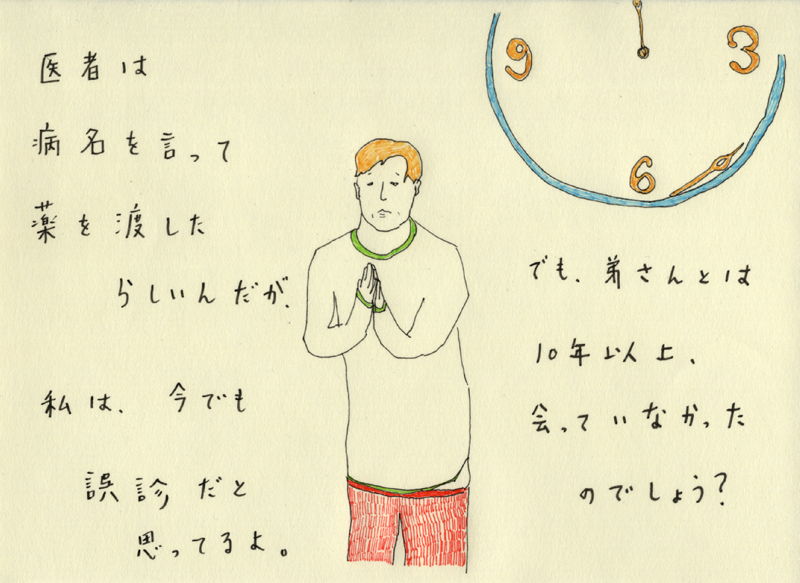 医者は
病名を言って
薬を渡した
らしいんだが、
私は、今でも
誤診だと
思ってるよ。
9
3
6
でも、弟さんとは
10年以上、
会っていなかった
のでしょう?